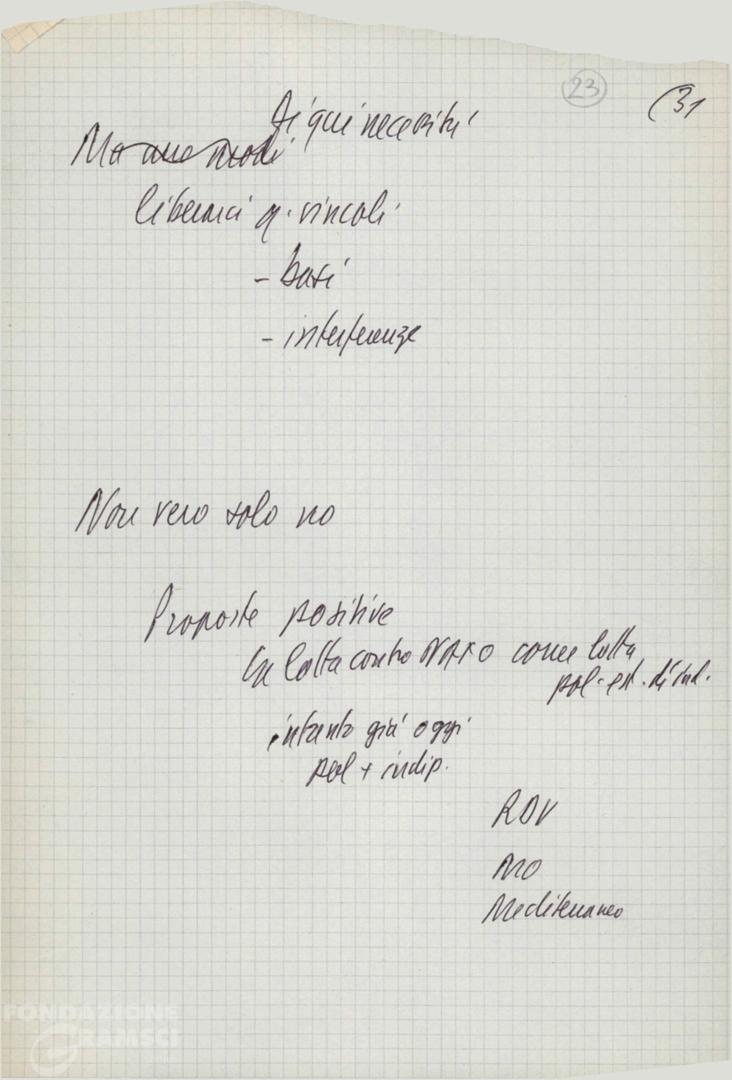 23
(31
Di qui necessità
Ma
liberarci vincoli
- basi
- interferenze
Non vero solo no
Proposte positive
La lotta contro NATO come lotta
pol. est. di ind.
intanto già oggi
pol + indip.
RDV
MO
Mediterraneo
FONDAZIONE
GRAMSCI